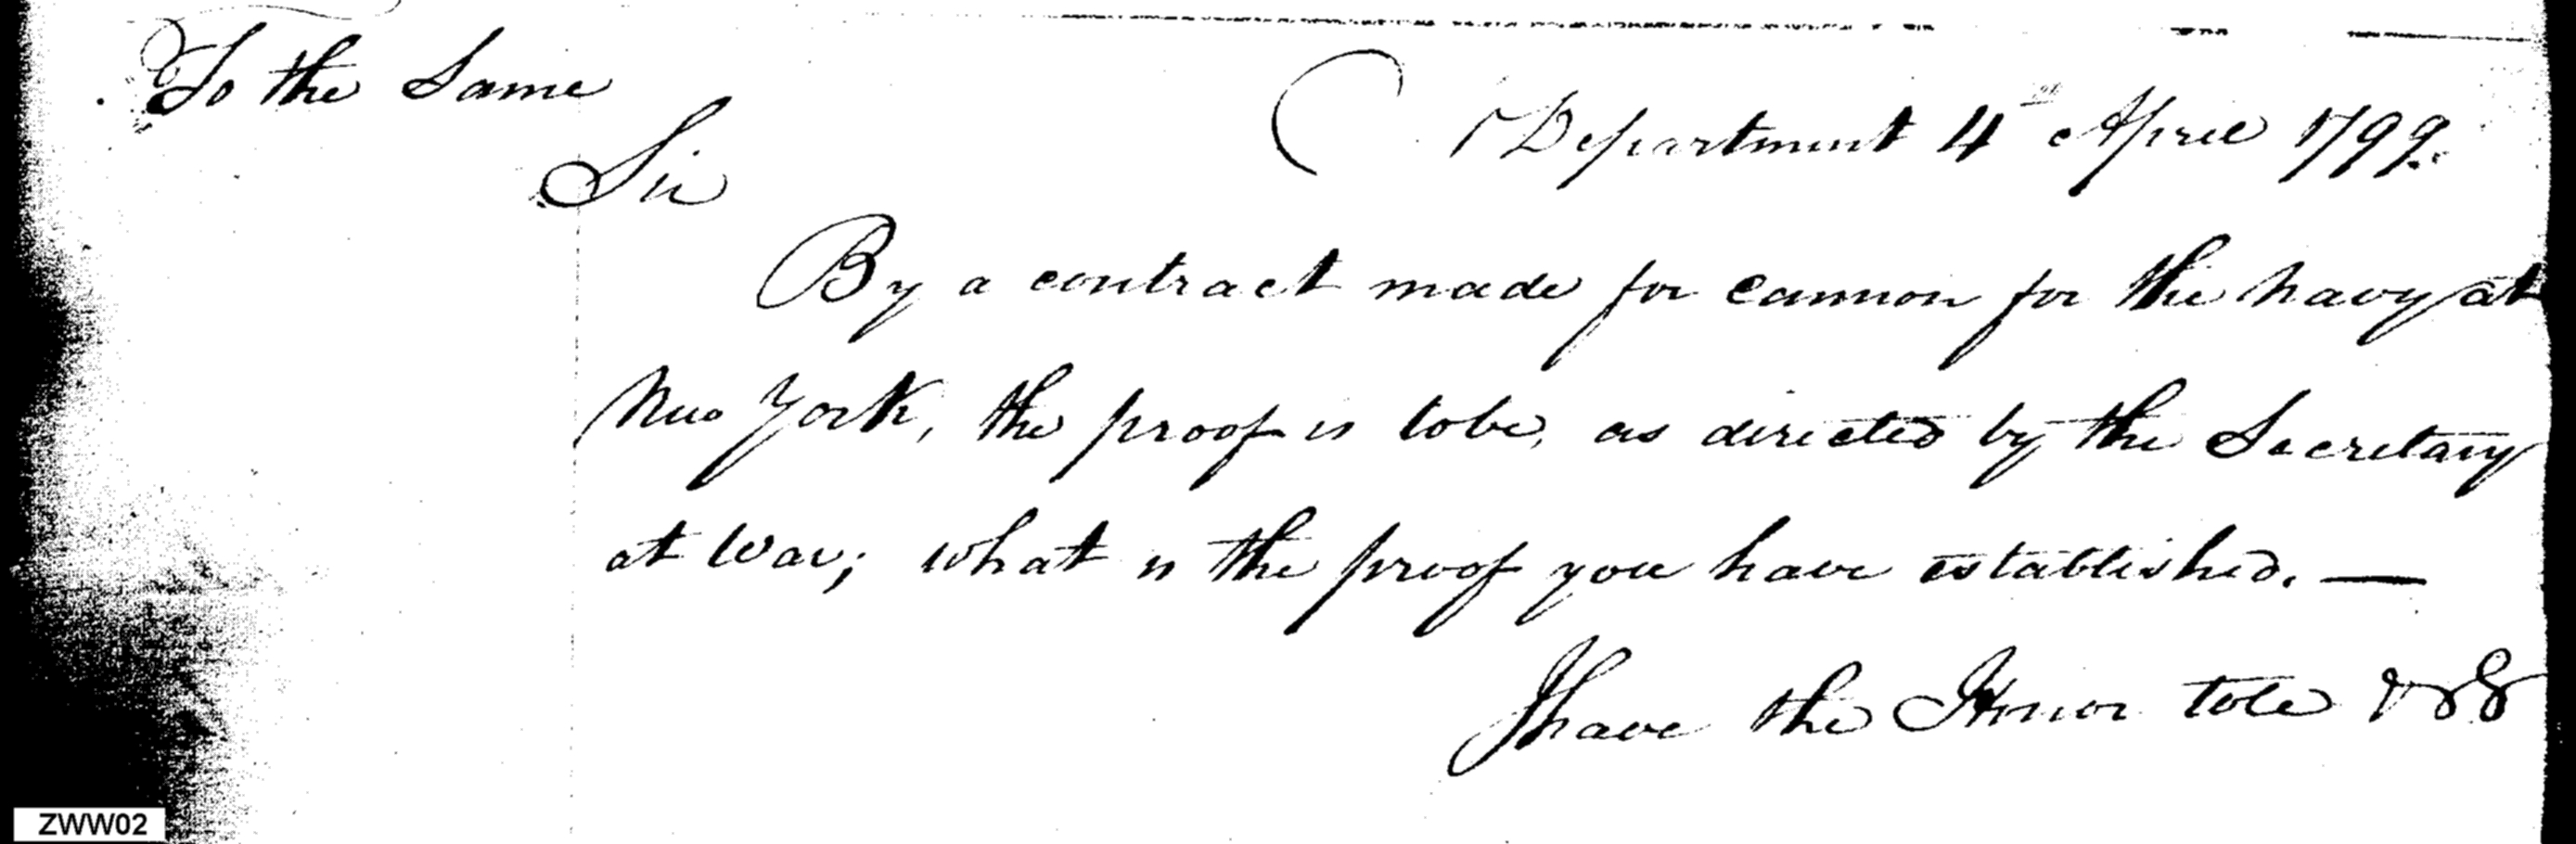 To the Same
Department 4th April 1799.
Sir
By a contract made for cannon for the navy at
New York, the proof is to be, as directed by the Secretary
at War; what is the proof you have established. —
I have the Honor to be &c &c
ZWW02